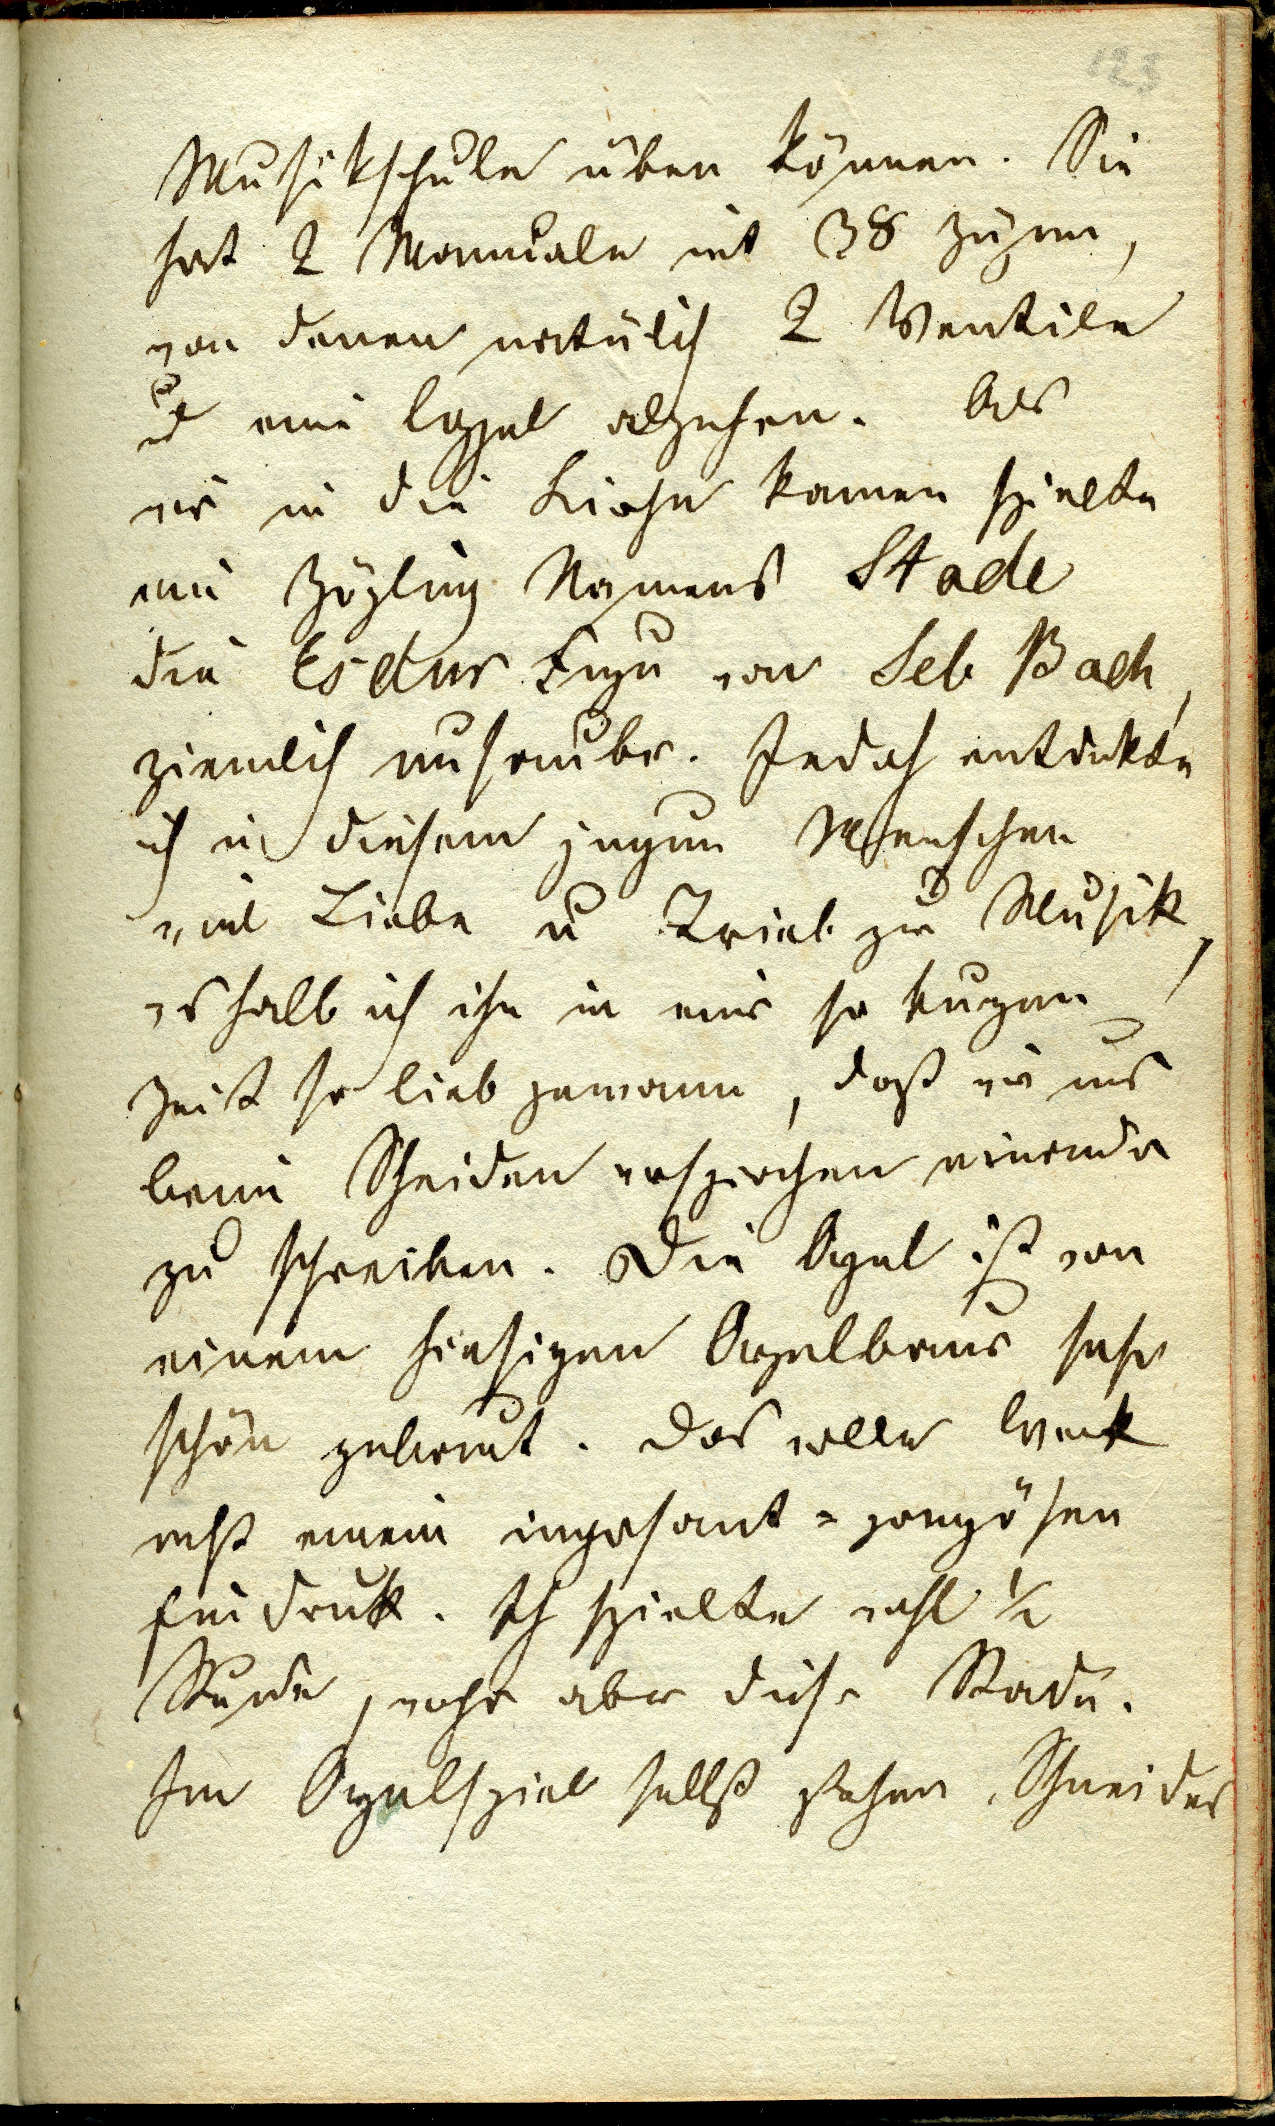 123
Musikschule üben können. Sie
hat 2 Manuale mit 38 Zügen,
von denen natürlich 2 Ventile
u eine Coppel abgehen. Als
wir in die Kirche kamen spielte
ein Zögling Namens Stade
die Es dur Fuge von Seb Bach,
ziemlich unsauber. Jedoch entdekte
ich in diesem jungen Menschen
viel Liebe u Trieb zur Musik,
weshalb ich ihn in einer so kurzen
Zeit so lieb gewann, daß wir uns
beim Scheiden versprochen einander
zu schreiben. Die Orgel ist von
einem hiesigen Orgelbauer sehr
schön gebaut. Das volle Werk
macht einen
Eindruk. Ich spielte wohl ½
Stunde, mehr aber dieser Stade.
Im Orgelspiel selbst stehen Schneider